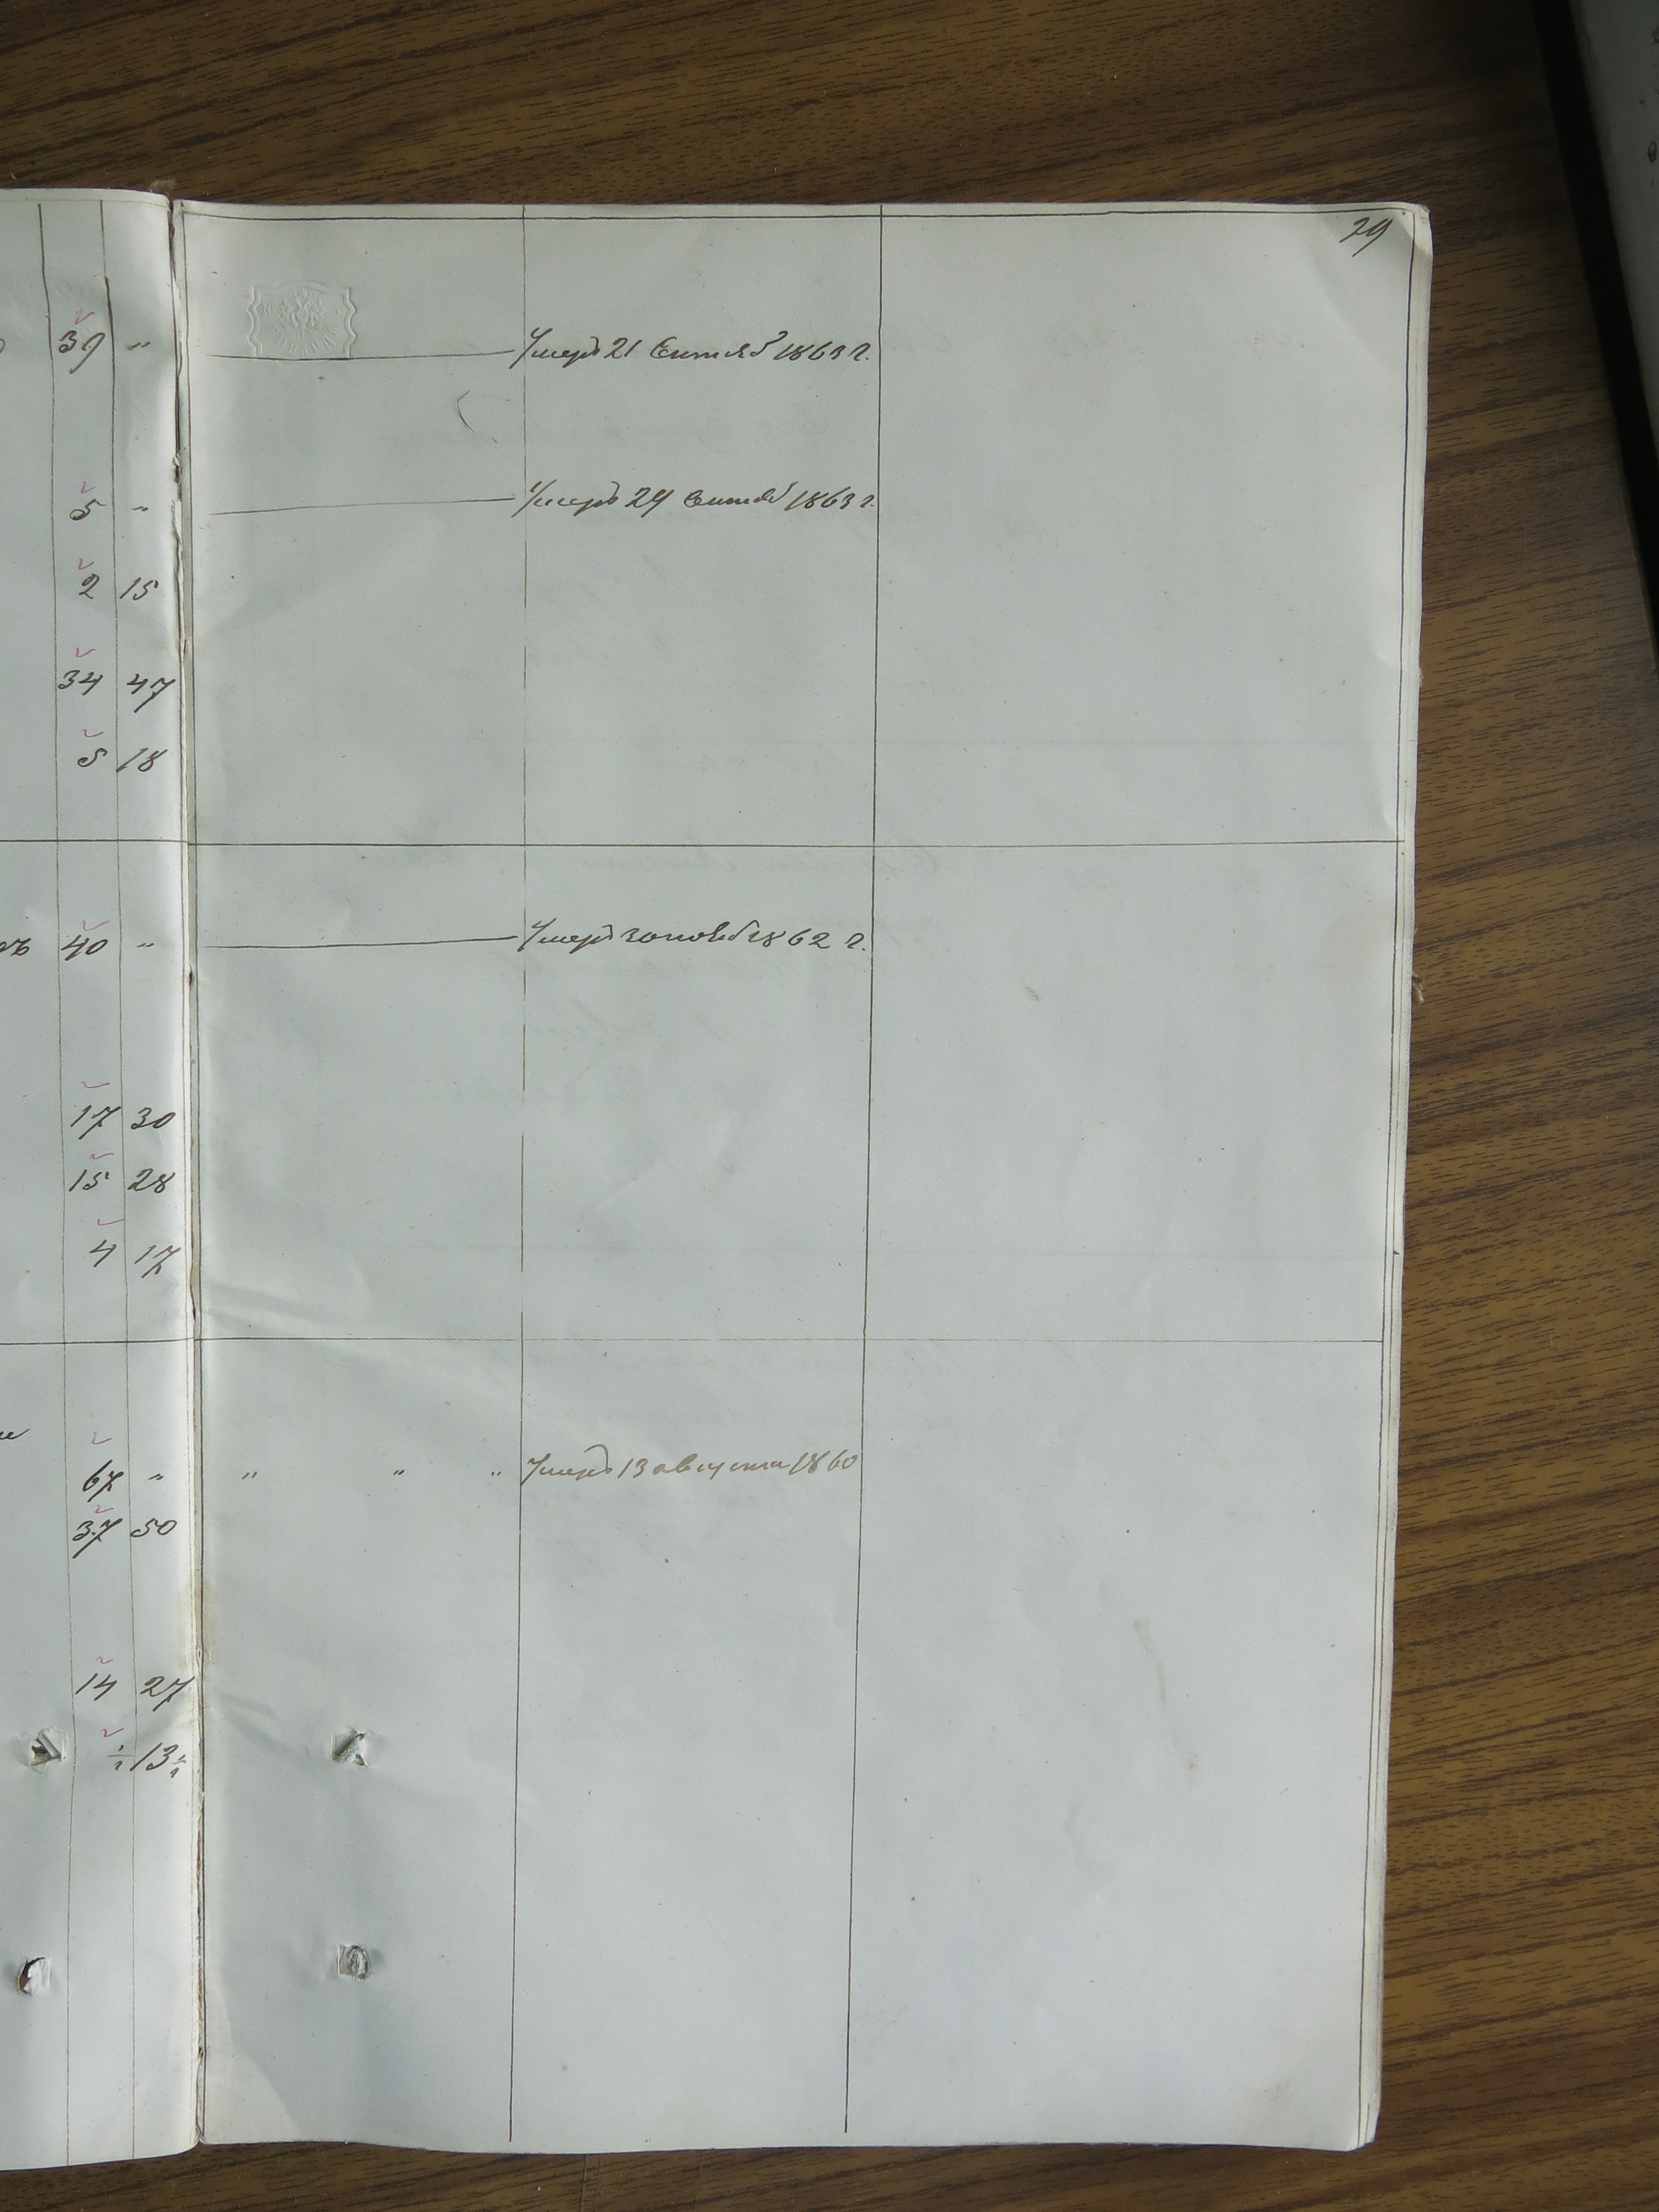 29
39 " Умеръ 21 Сентяб 1863 г.
5 " Умеръ 29 Сентяб 1863 г.
2 15
34 47
5 18
40 " Умеръ 30 нояб 1862 г.
17 30
15 28
4 17
67 " " " " Умеръ 13 августа 1860
37 50
14 27
½ 13½